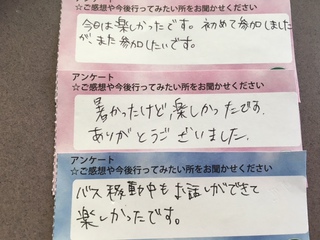 ☆ご感想や今後行ってみたい所をお聞かせください
今日は楽しかったです。初めて参加しました
が、また参加したいです。
アンケート
☆ご感想や今後行ってみたい所をお聞かせください
暑かったけど楽しかったです.
ありがとうございました.
アンケート
☆ご感想や今後行ってみたい所をお聞かせください
バス移動中もお話しができて
楽しかったです。